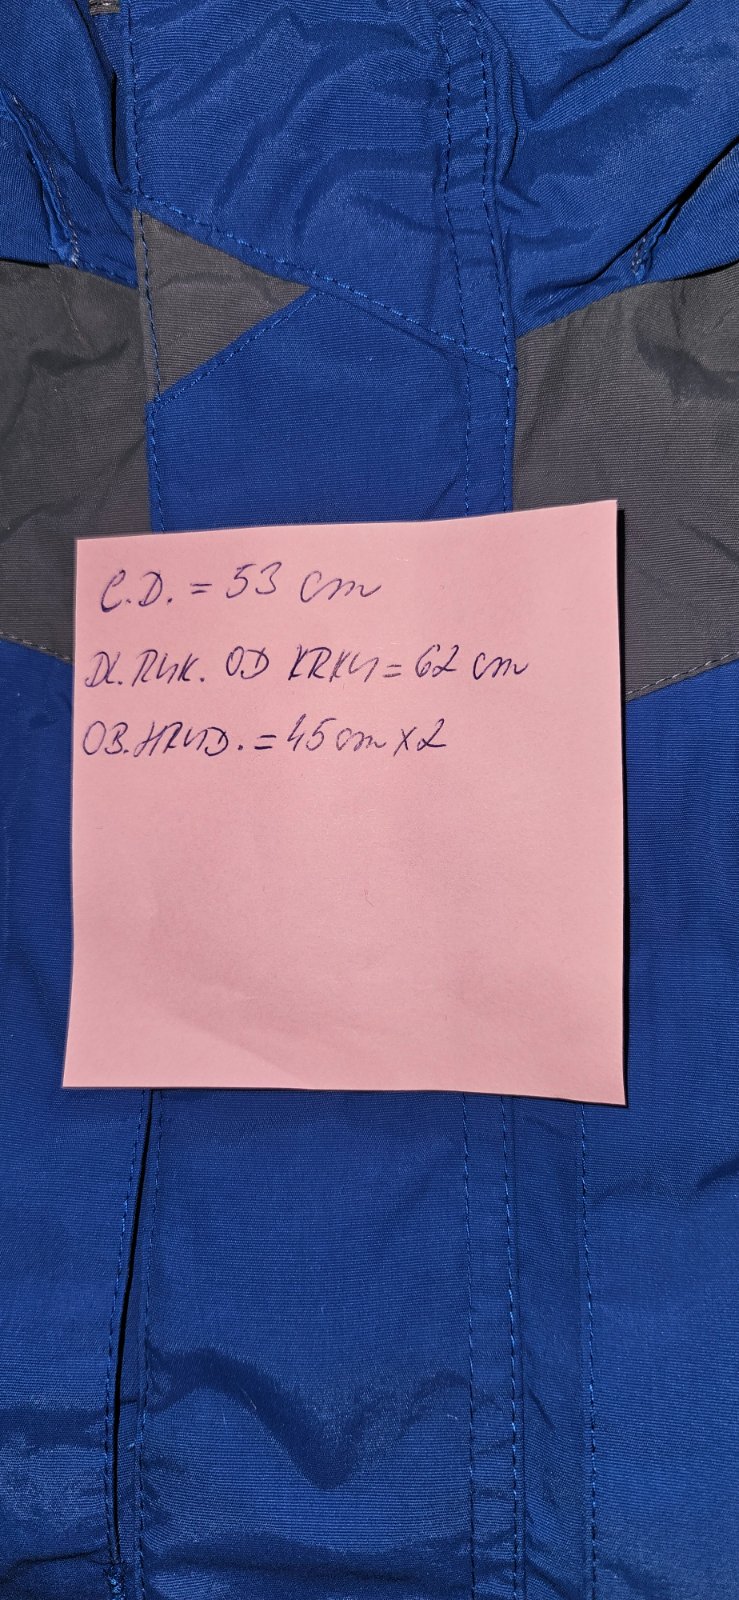 C.D. = 53 cm
DL. RUK. OD KRKU = 62 cm
OB. HRUD. = 45 cm x 2